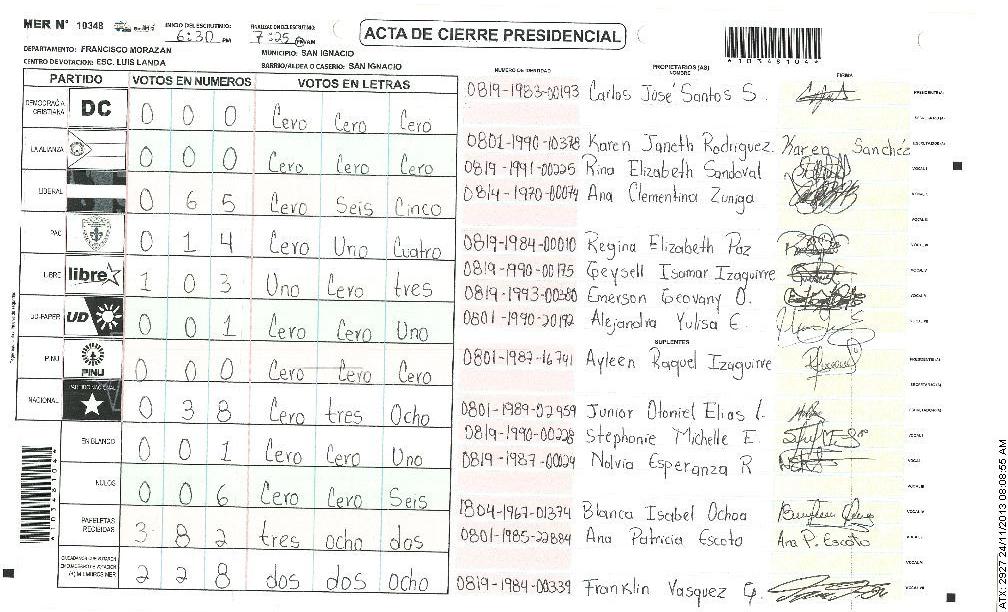 MER N° 10348 INICIO DEL ESCRUTINIO: 6:30 PM FINALIZACION DEL ESCRUTINIO: 7:25 PM AM
ACTA DE CIERRE PRESIDENCIAL
A10348104
DEPARTAMENTO: FRANCISCO MORAZAN MUNICIPIO: SAN IGNACIO
CENTRO DE VOTACION: ESC. LUIS LANDA BARRIO/ALDEA O CASERIO: SAN IGNACIO
PARTIDO VOTOS EN NUMEROS VOTOS EN LETRAS
DEMOCRACIA CRISTIANA DC 0 0 0 Cero Cero Cero
LA ALIANZA 0 0 0 Cero Cero Cero
LIBERAL 0 6 5 Cero Seis Cinco
PAC 0 1 4 Cero Uno Cuatro
LIBRE libre 1 0 3 Uno Cero tres
UD-FAPER UD 0 0 1 Cero Cero Uno
PINU PINU 0 0 0 Cero Cero Cero
NACIONAL PARTIDO NACIONAL 0 3 8 Cero tres Ocho
EN BLANCO 0 0 1 Cero Cero Uno
NULOS 0 0 6 Cero Cero Seis
PAPELETAS RECIBIDAS 3 8 2 tres ocho dos
2 2 8 dos dos Ocho
NUMERO DE IDENTIDAD PROPIETARIOS (AS) NOMBRE FIRMA
0819-1983-00193 Carlos José Santos S. PRESIDENTE(A)
SECRETARIO(A)
0801-1990-10378 Karen Janeth Rodriguez. Karen Sanchéz ESCRUTADOR(A)
0819-1991-00225 Rina Elizabeth Sandoval VOCAL I
0814-1970-00074 Ana Clementina Zuniga VOCAL II
VOCAL III
0819-1984-00010 Regina Elizabeth Paz VOCAL IV
0819-1990-00175 Geysell Isamar Izaguirre VOCAL V
0819-1993-00380 Emerson Geovany O. VOCAL VI
0801-1990-20192 Alejandra Yulisa E. VOCAL VII
SUPLENTES
0801-1987-16741 Ayleen Raquel Izaguirre PRESIDENTE(A)
SECRETARIO(A)
0801-1989-02959 Junior Otoniel Elias L. ESCRUTADOR(A)
0819-1990-00228 Stephonie Michelle E. VOCAL I
0819-1987-00029 Nolvia Esperanza R VOCAL II
VOCAL III
1804-1967-01374 Blanca Isabel Ochoa VOCAL IV
0801-1985-22884 Ana Patricia Escoto Ana P. Escoto VOCAL V
VOCAL VI
0819-1984-00339 Franklin Vasquez G. VOCAL VII
A10348104
ATX-2927 24/11/2013 08:08:55 AM